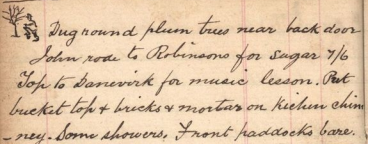 Dug round plum trees near back door
John rode to Robinsons for sugar 7/6
Top to Danevirk for music lesson. Put
bucket top & bricks & mortar on kichin chim
-ney. Some showers. Front paddocks bare.